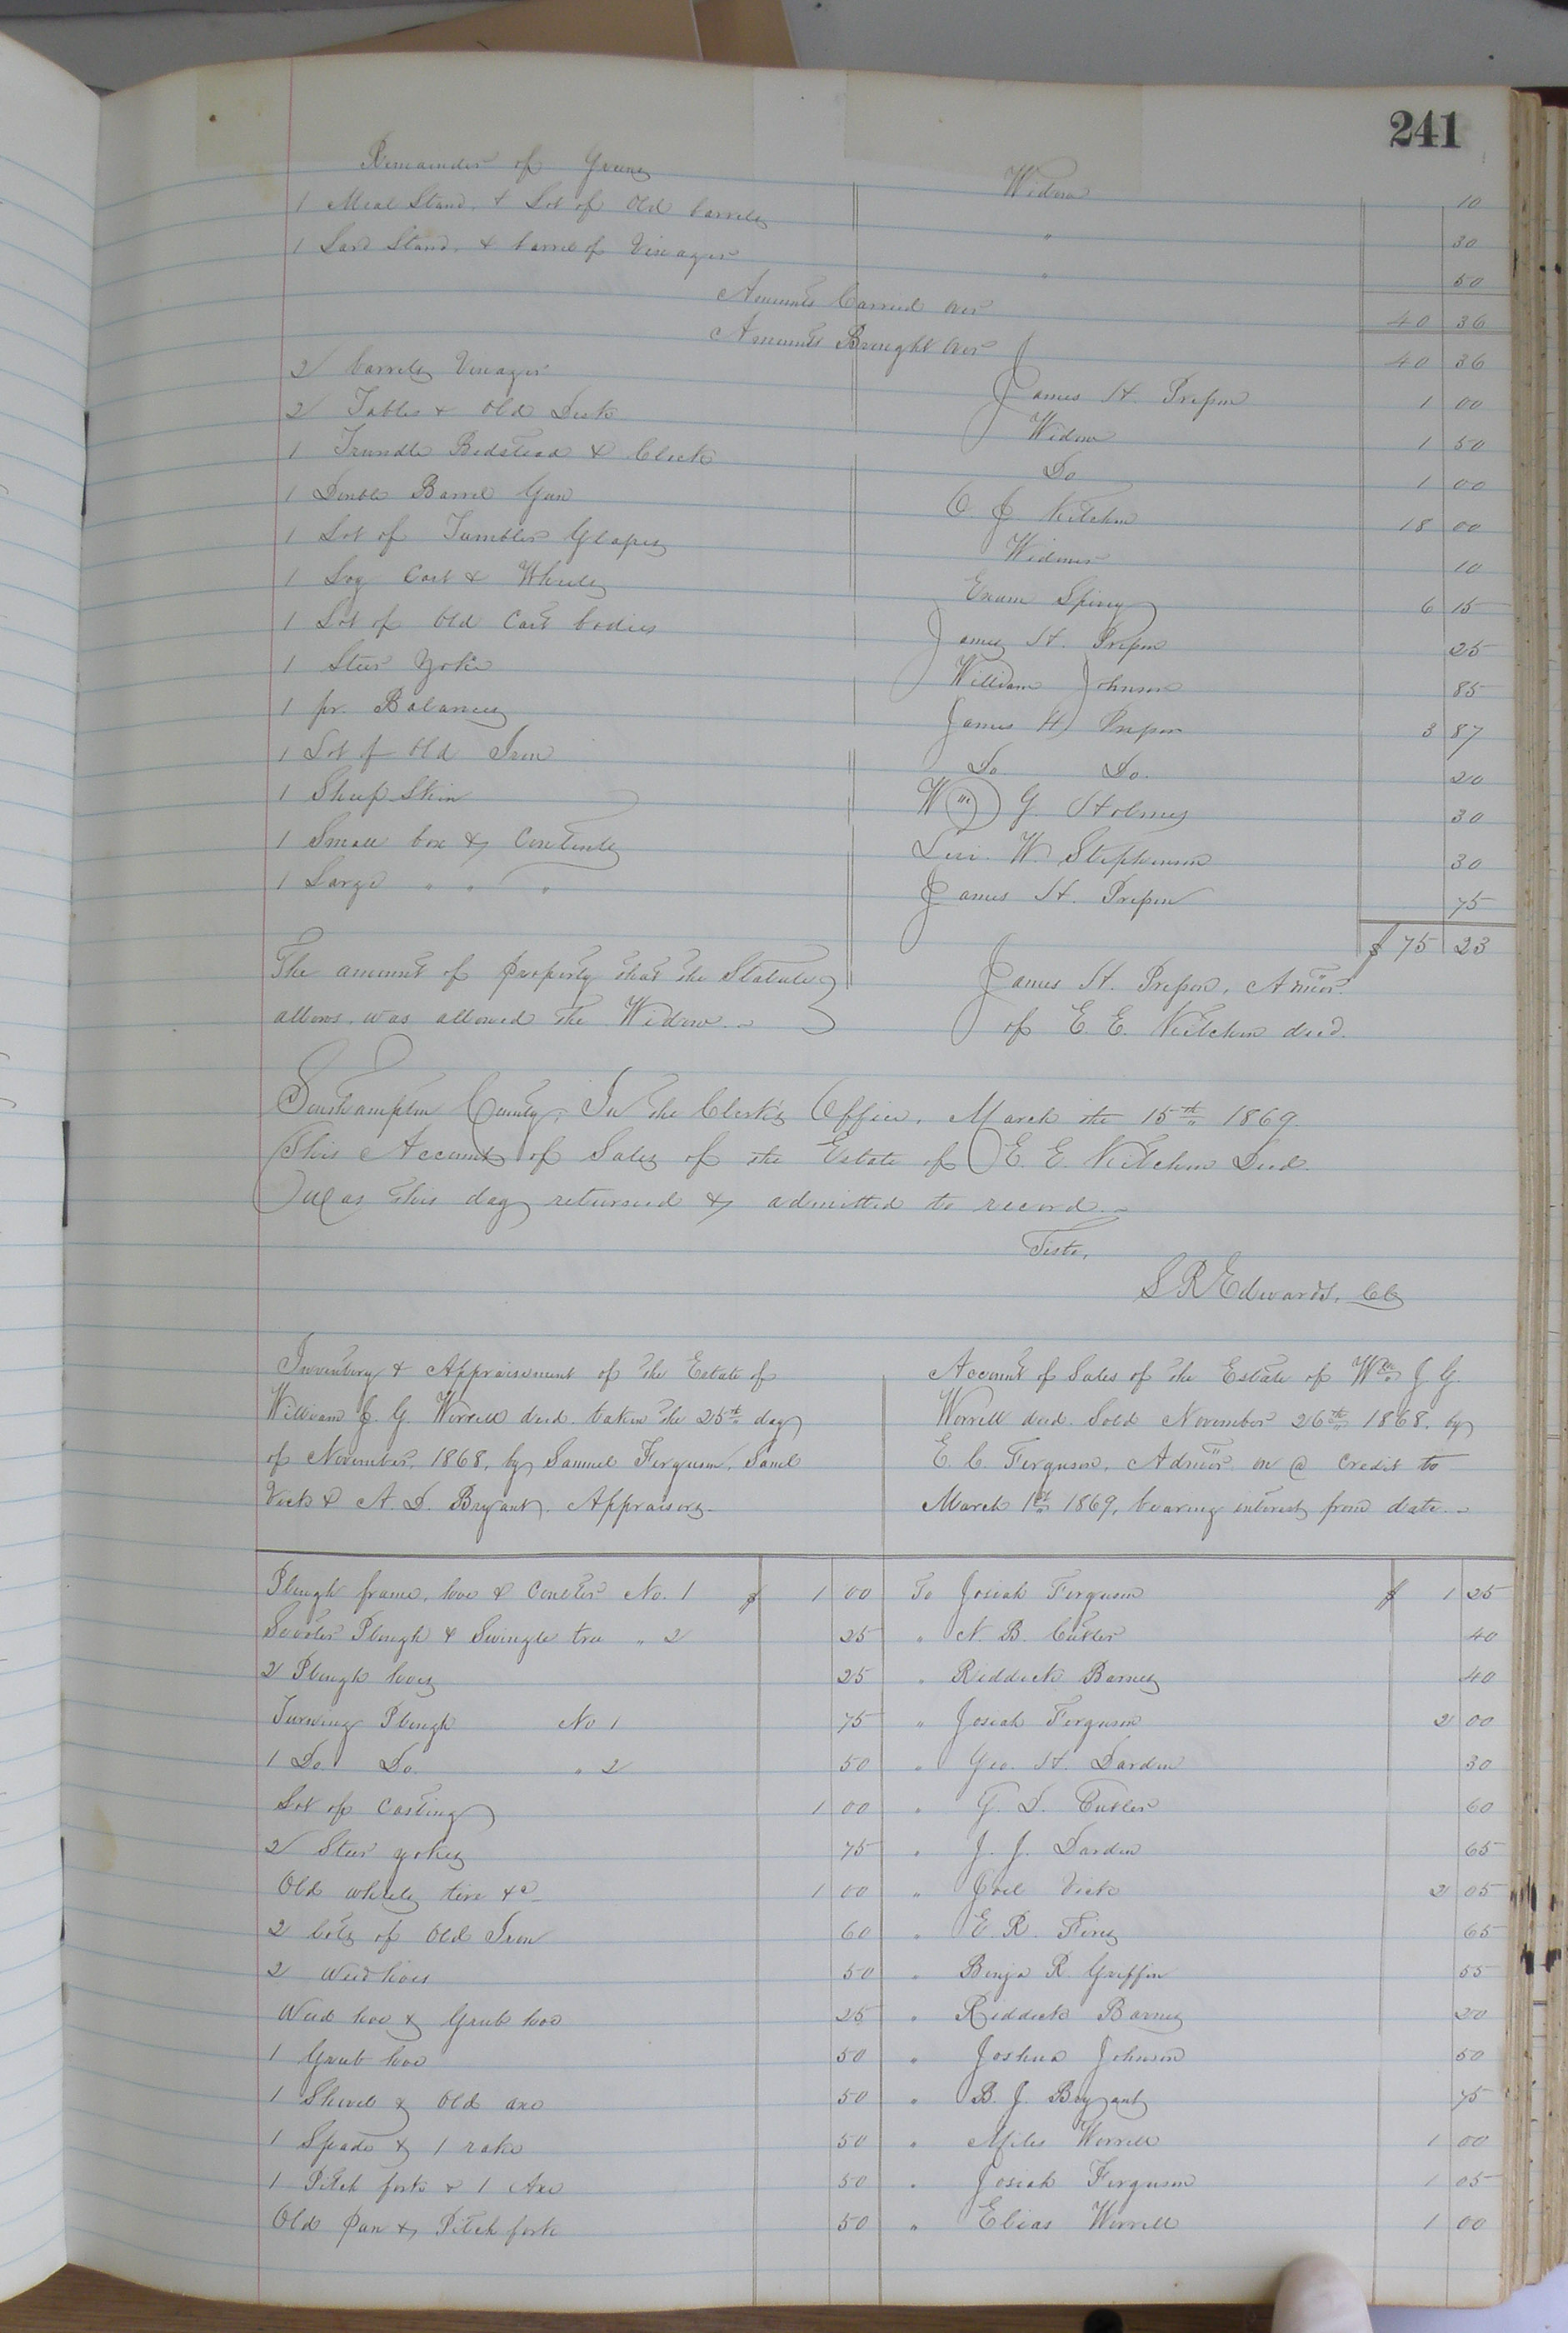 241
Remainder of Geering Widow 10
1 Meal Stand, & Lot of Old barrels " 30
1 Lard Stand, & barrel of Vinager " 50
Amounts Carried Over 40 36
Amounts Brought Over 40 36
2 barrels Vinager James H. Prepon 1 00
2 Tables & Old Desk Widow 1 50
1 Trundle Bedstead & Clock Do 1 00
1 Double Barrel Gun O. J Kitchen 18 00
1 Lot of Tumbler Glapes Widow 10
1 Log Cart & Wheels Exum Spivey 6 15
1 Lot of Old Cart bodies James H. Prepon 25
1 Steer Yoke William Johnson 85
1 pr. Balances James H Prepon 3 87
1 Lot of Old Iron Do Do. 20
1 Sheep Skin Wm G. Holmes 30
1 Small box & Contents Levi. W. Stephenson 30
1 Large " " " James H. Prepon 75
$ 75 23
The amount of property that the Statute James H. Prepon, Admor.
allows, was allowed the Widow. of E. E. Kitchen decd.
Southampton County; In the Clerk's Office, March the 15th 1869.
This Account of Sales of the Estate of E. E. Kitchen Decd.
Was this day returned & admitted to record.
Teste,
S R Edwards, CC
Inventory & Appraisement of the Estate of
William J. G. Worrell decd. taken the 25th day
of November, 1868, by Samuel Ferguson, Saml
Vick & A. D. Bryant, Appraisers.
Account of Sales of the Estate of Wm J. G.
Worrell decd. Sold November 26th 1868. by
E. C. Ferguson, Admor. on a Credit to
March 1st 1869, bearing interest from date.
Plough frame, hoe & Coulter No. 1 $ 1 00 To Josiah Ferguson $ 1 25
Scooter Plough & Swingle tree " 2 25 " N. B. Cutler 40
2 Plough hoes 25 " Riddick Barnes 40
Turning Plough No 1 75 " Josiah Ferguson 2 00
1 Do. Do. " 2 50 " Geo. H. Darden 30
Lot of Castings 1 00 " G. D. Cutler 60
2 Steer yokes 75 " J. J. Darden 65
Old wheels tire &c 1 00 " Joel Vick 2 05
2 lots of Old Iron 60 " E. R. 65
2 Weed hoes 50 " Benja R. Griffin 55
Weed hoe & Grub hoe 25 " Riddick Barnes 20
1 Grub hoe 50 " Joshua Johnson 50
1 Shovel & Old axe 50 " B. J. Bryant 75
1 Spade & 1 rake 50 " Miles Worrell 1 00
1 Pitch fork & 1 Axe 50 " Josiah Ferguson 1 05
Old pan & Pitch fork 50 " Elias Worrell 1 00